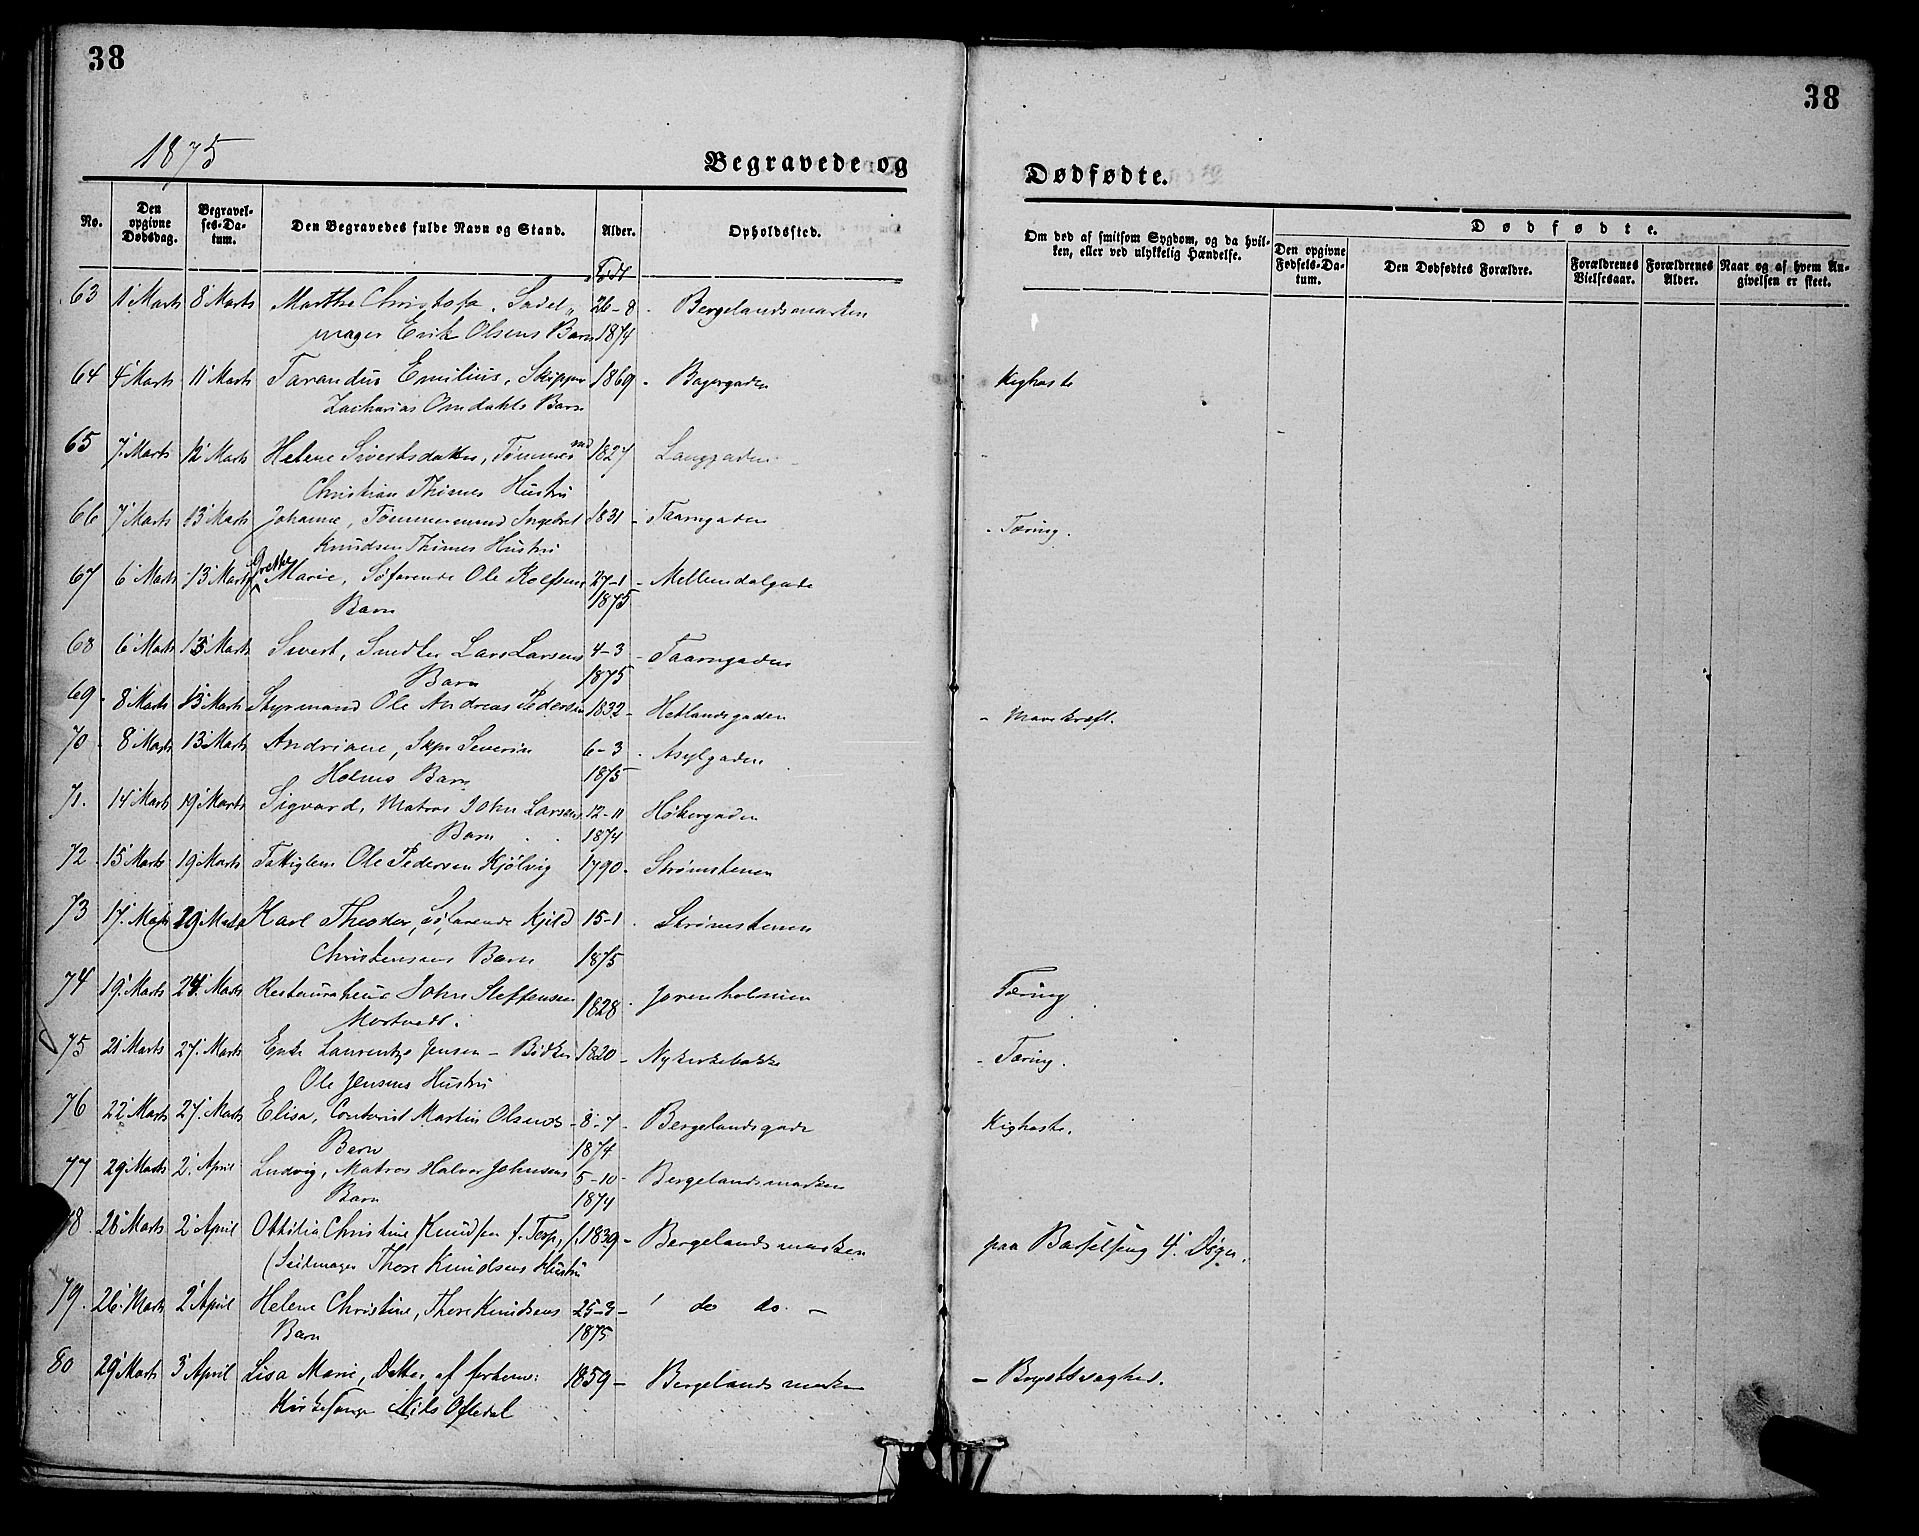 38
38
1875
Begravede og
Dødfødte.
No.
Den opgivne Dødsdag.
Begravelses-Datum.
Den Begravedes fulde Navn og Stand.
Alder.
Opholdssted.
Om død af smitsom Sygdom, og da hvilken, eller ved ulykkelig Hændelse.
Dødfødte.
Den opgivne Fødsels-Datum.
Den Dødfødtes Forældre.
Forældrenes Vielsesaar.
Forældrenes Alder.
Naar og af hvem Angivelsen er skeet.
Født
63 1 Marts 8 Marts Marthe Christofa, Sadel- 26-8 Bergelandsmarken
mager Erik Olsens Barn 1874
64 4 Marts 11 Marts Tarandus Emilius, Skipper 1869 - Bagergaden Kighoste
Zacharias Omdahls Barn
65 7. Marts 12 Marts Helene Sivertsdatter, Tømmermd 1827 Langgaden
Christian Thimes Hustru
66 7 Marts 13 Marts Johanne, Tømmermand Ingebret 1831 - Taarngaden - Tæring.
Knudsen Thimes Hustru
67 6 Marts 13 Marts Grethe Marie, Søfarende Ole Rolfsens 27-1 - Mellemdalgade
Barn 1875
68 6 Marts 13 Marts Sivert, Smed Lars Larsens 4-3 - Taarngaden
Barn 1875
69 8 Marts 13 Marts Styrmand Ole Andreas Pedersen 1832 - Hetlandsgaden - Mavekræft.
70 8 Marts 13 Marts Andriane, Skpr Severin 6-3 - Asylgaden
Holms Barn 1875
71. 14 Marts 19 Marts Sigvard, Matros John Larsens 12-11 Høkergaden
Barn 1874
72 15 Marts 19 Marts Fattiglem Ole Pedersen Kjølvig 1790 - Strømstenen
73 17. Marts 29 Marts Karl Theodor, Søfarende Kjeld 15-1 Strømstenen
Christensens Barn 1875
74 19. Marts 24 Marts Restaurateur John Steffensen 1828 - Jorenholmen Tæring
75 21 Marts 27. Marts Laurentze Jensen - Bødker 1820 - Nykirkebakke - Tæring.
Ole Jensens Hustru
76 22 Marts 27. Marts Elisa, Contorist Martin Olsens 8-7 - Bergelandsgade Kighoste.
Barn 1874
77 29 Marts 2. April Ludvig, Matros Halvor Johnsens 5-10 - Bergelandsmarken
Barn 1874
78 28 Marts 2 April Ottilia Christine Knudsen f. Terp, f. 1839 - Bergelandsmarken paa Barselseng 4 Døgn.
(Seilmager Thore Knudsens Hustru
79. 26. Marts 2 April Helene Christine, Thore Knudsens 25-3 - do do. -
Barn 1875
80 29 Marts 3 April Lisa Marie, Datter af forhenv: 1859 - Bergelandsmarken - Brystsvaghed.
Kirkesanger Nils Oftedal